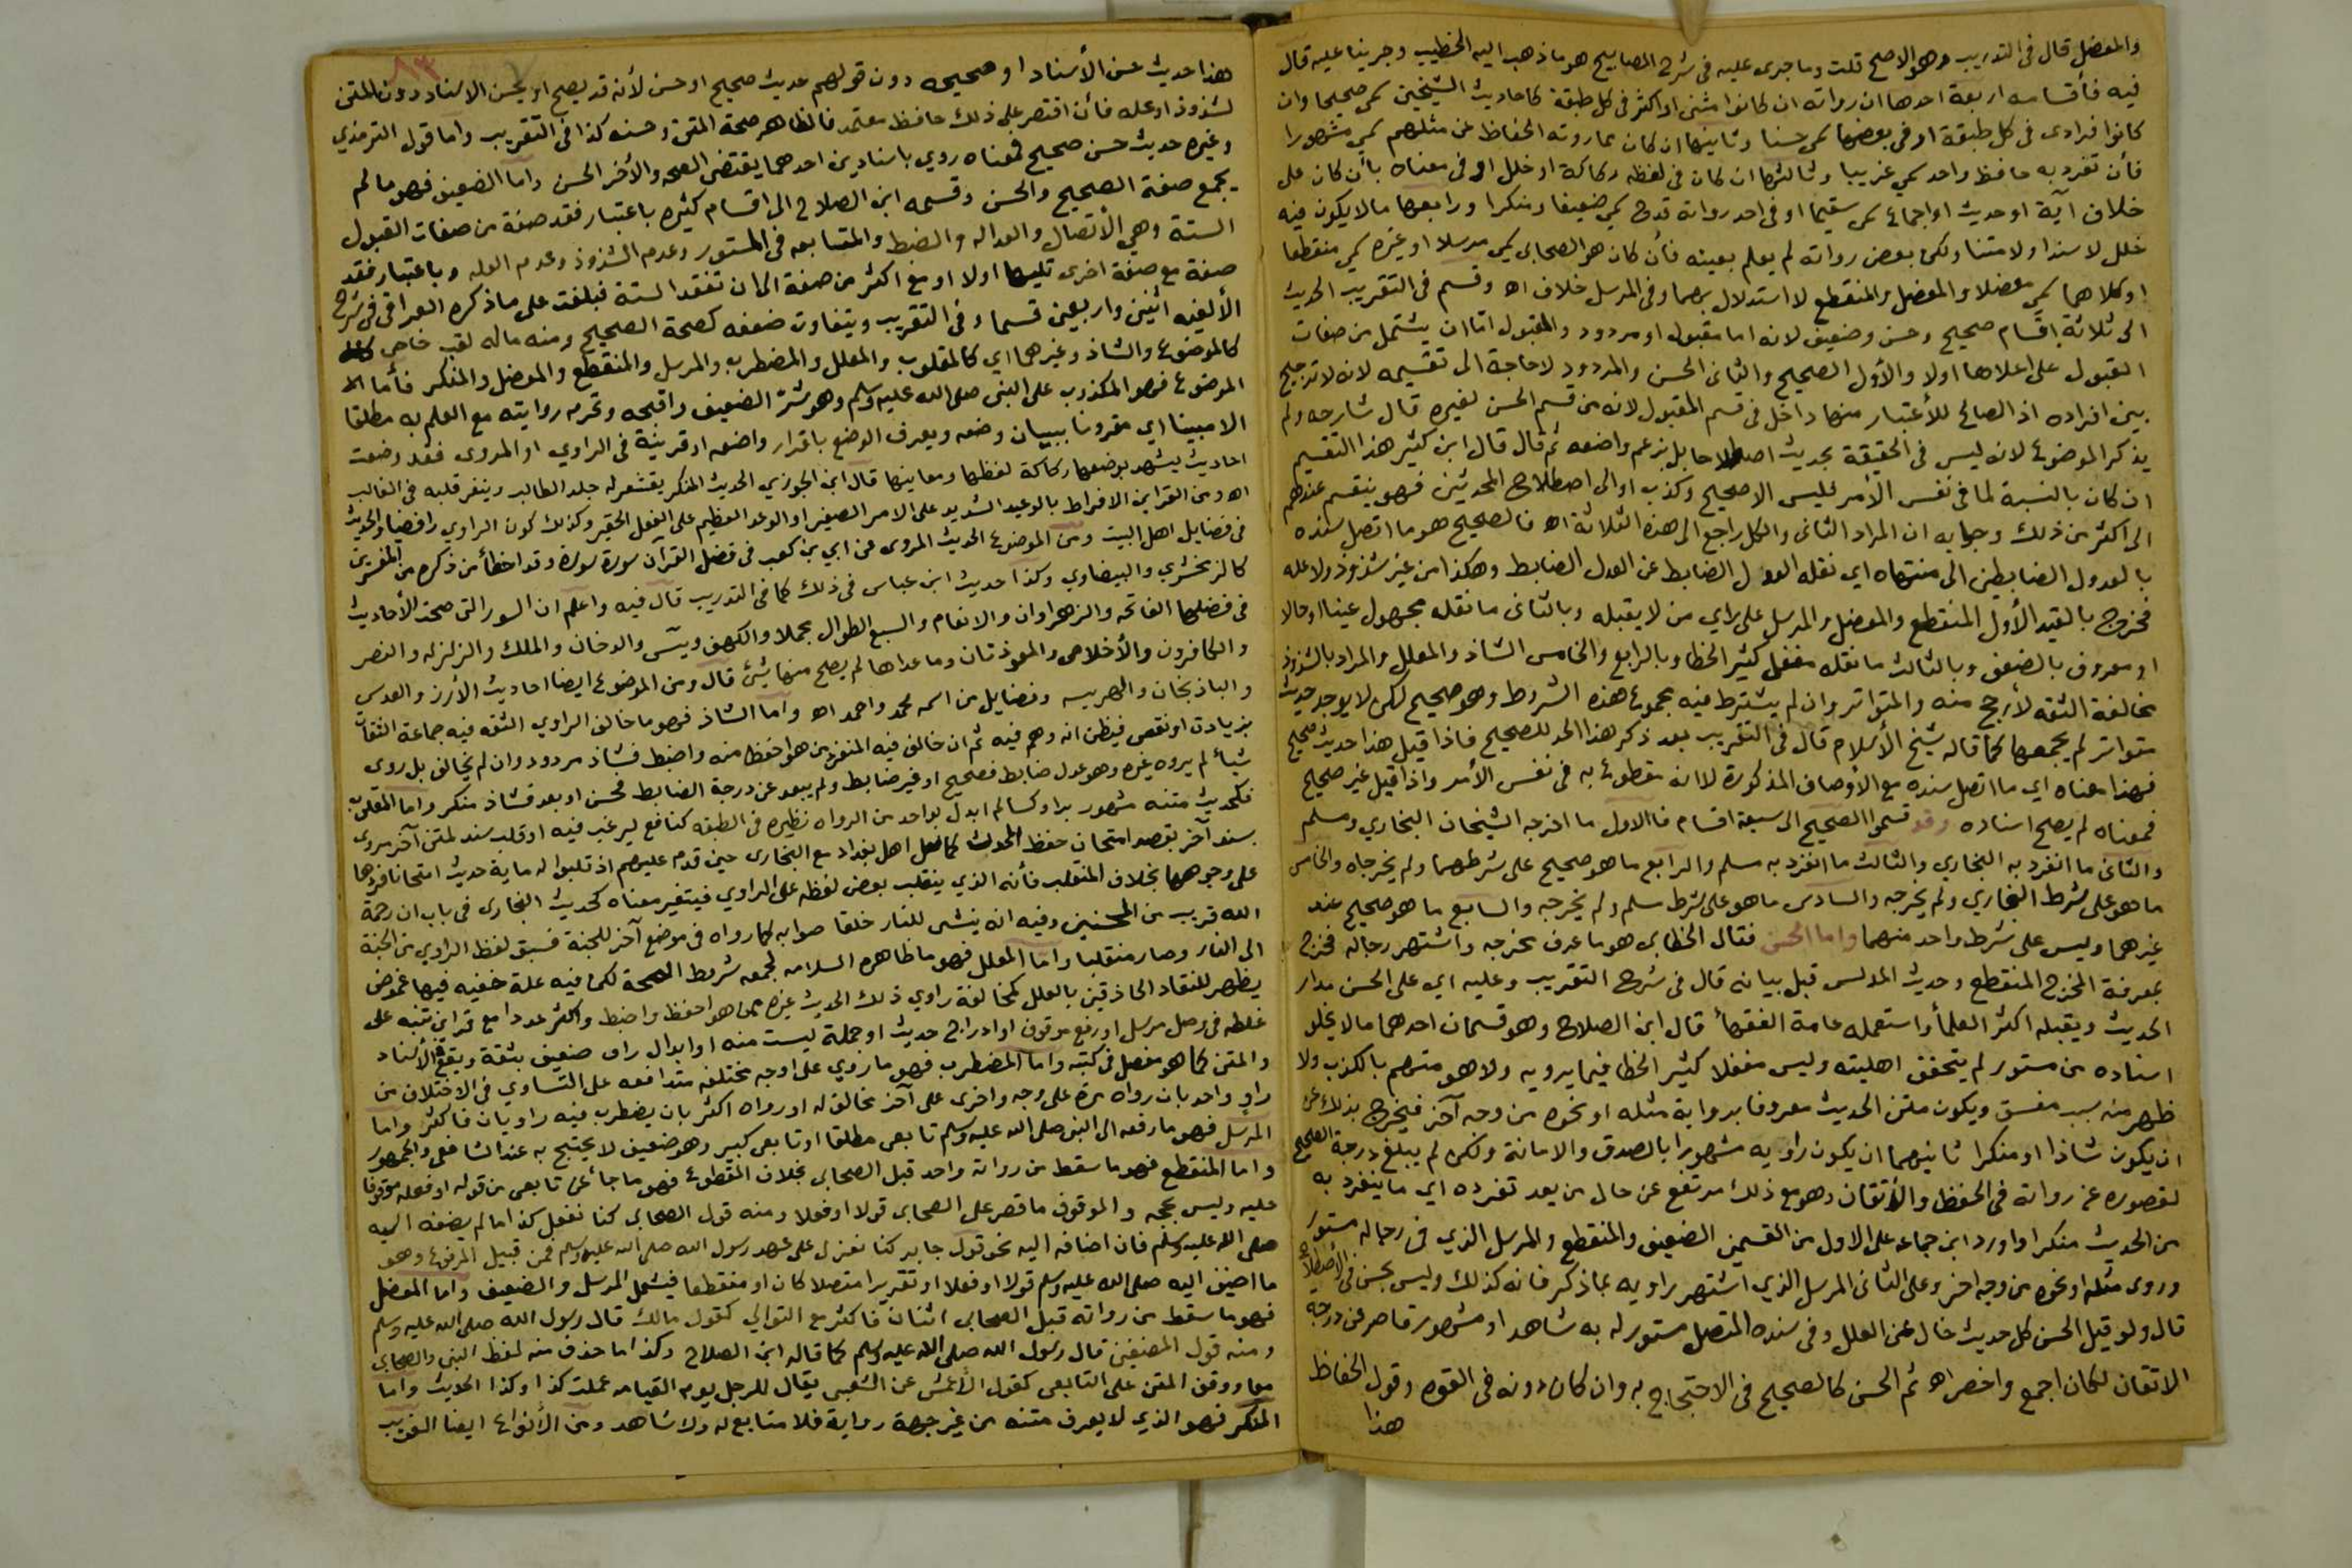 والمعضل قال في التدريب وهو الاصح قلت وما جرى عليه في شرح المصابيح هو ما ذهب اليه الخطيب وجرينا عليه قال
فيه فأقسامه اربعة احدها ان رواته ان كانوا مثنى او اكثر في كل طبقة كاحاديث الشيخين سمي صحيحا وان
كانوا فرادى في كل طبقة او في بعضها سمي حسنا وثانيها ان كان مما روته الحفاظ عن مثلهم سمي مشهورا
فأن تفرد به حافظ واحد سمي غريبا وثالثها ان كان في لفظه ركاكة او خلل او في معناه بأن كان على
خلاف آية او حديث او اجماع سمي سقيما او في احد رواته قدح سمي ضعيفا ومنكرا ورابعها ما لا يكون فيه
خلل لا سندا ولا متنا ولكن بعض رواته لم يعلم بعينه فأن كان هو الصحابي سمي مرسلا او غيره سمي منقطعا
او كلاهما سمي معضلا والمعضل والمنقطع لا استدلال بهما وفي المرسل خلاف اه وقسم في التقريب الحديث
الى ثلاثة اقسام صحيح وحسن وضعيف لانه اما مقبول او مردود والمقبول اما ان يشتمل من صفات
القبول على اعلاها اولا والأول الصحيح والثاني الحسن والمردود لا حاجة الى تقسيمه لانه لا ترجيح
بين افراده اذ الصالح للأعتبار منها داخل في قسم المقبول لانه من قسم الحسن لغيره قال شارحه ولم
يذكر الموضوع لانه ليس في الحقيقة بحديث اصطلاحا بل بزعم واضعه ثم قال قال ابن كثير هذا التقسيم
ان كان بالنسبة لما في نفس الأمر فليس الا صحيح وكذب او الى اصطلاح المحدثين فهو ينقسم عندهم
الى اكثر من ذلك وجوابه ان المراد الثاني والكل راجع الى هذه الثلاثة اه فالصحيح هو ما اتصل سنده
بالعدول الضابطين الى منتهاه اي نقله العدل الضابط عن العدل الضابط وهكذا من غير شذوذ ولا علة
فخرج بالقيد الأول المنقطع والمعضل والمرسل على راي من لا يقبله وبالثاني ما نقله مجهول عينا او حالا
او معروف بالضعف وبالثالث ما نقله مغفل كثير الخطا وبالرابع والخامس الشاذ والمعلل والمراد بالشذوذ
مخالفة الثقة لأرجح منه والمتواتر وان لم يشترط فيه مجموع هذه الشروط وهو صحيح لكن لا يوجد حديث
متواتر لم يجمعها كما قاله شيخ الأسلام قال في التقريب بعد ذكر هذا الحد للصحيح فاذا قيل هذا حديث صحيح
فهذا معناه اي ما اتصل سنده مع الأوصاف المذكورة لا انه مقطوع به في نفس الأمر واذا قيل غير صحيح
فمعناه لم يصح اسناده وقد قسموا الصحيح الى سبعة اقسام فالاول ما اخرجه الشيخان البخاري ومسلم
والثاني ما انفرد به البخاري والثالث ما انفرد به مسلم والرابع ما هو صحيح على شرطهما ولم يخرجاه والخامس
ما هو على شرط البخاري ولم يخرجه والسادس ما هو على شرط مسلم ولم يخرجه والسابع ما هو صحيح عند
غيرهما وليس على شرط واحد منهما واما الحسن فقال الخطابي هو ما عرف مخرجه واشتهر رجاله فخرج
بمعرفة المخرج المنقطع وحديث المدلس قبل بيانه قال في شرح التقريب وعليه اي على الحسن مدار
الحديث ويقبله اكثر العلمأ واستعمله عامة الفقهأ قال ابن الصلاح وهو قسمان احدهما ما لا يخلو
اسناده من مستور لم يتحقق اهليته وليس مغفلا كثير الخطا فيما يرويه ولا هو متهم بالكذب ولا
ظهر منه سبب مفسق ويكون متن الحديث معروفا برواية مثله او نحوه من وجه آخر فيخرج بذلك عن
ان يكون شاذا او منكرا ثانيهما ان يكون راويه مشهورا بالصدق والامانة ولكن لم يبلغ درجة الصحيح
لقصوره عن رواته في الحفظ والأتقان وهو مع ذلك مرتفع عن حال من يعد تفرده اي ما ينفرد به
من الحديث منكرا واورد ابن جماعه على الاول من القسمين الضعيف والمنقطع والمرسل الذي في رجاله مستور
وروى مثله او نحوه من وجه اخر وعلى الثاني المرسل الذي اشتهر راويه بما ذكر فانه كذلك وليس بحسن في الاصطلاح
قال ولو قيل الحسن كل حديث خال عن العلل وفي سنده المتصل مستور له به شاهد او مشهور قاصر عن درجة
الاتقان لكان اجمع واخصر اه ثم الحسن كالصحيح في الاحتجاج به وان كان دونه في القوة وقول الحفاظ
هذا
٨٣
هذا حديث حسن الأسناد او صحيحه دون قولهم حديث صحيح او حسن لأنه قد يصح او يحسن الاسناد دون المتن
لشذوذ او علة فأن اقتصر على ذلك حافظ معتمد فالظاهر صحة المتن وحسنه كذا في التقريب واما قول الترمذي
وغيره حديث حسن صحيح فمعناه روي باسنادين احدهما يقتضي الصحه والأخر الحسن واما الضعيف فهو ما لم
يجمع صفة الصحيح والحسن وقسمه ابن الصلاح الى اقسام كثيره باعتبار فقد صفة من صفات القبول
الستة وهي الأتصال والعداله والضبط والمتابعه في المستور وعدم الشذوذ وعدم العله وباعتبار فقد
صفة مع صفة اخرى تليها اولا او مع اكثر من صفة الى ان تفقد الستة فبلغت على ماذكره العراقي في شرح
الألفيه اثنين واربعين قسما وفي التقريب ويتفاوت ضعفه كصحة الصحيح ومنه ماله لقب خاص
كالموضوع والشاذ وغيرهما اي كالمقلوب والمعلل والمضطرب والمرسل والمنقطع والمعضل والمنكر فأما
الموضوع فهو المكذوب على النبي صلى الله عليه وسلم وهو شر الضعيف واقبحه وتحرم روايته مع العلم به مطلقا
الا مبينا اي مقرونا ببيان وضعه ويعرف الوضع باقرار واضعه او قرينة في الراوي او المروي فقد وضعت
احاديث يشهد بوضعها ركاكة لفظها ومعاينها قال ابن الجوزي الحديث المنكر يقشعر له جلد الطالب وينفر قلبه في الغالب
اه ومن القراين الافراط بالوعيد الشديد على الامر الصغير او الوعد العظيم على الفعل الحقير وكذلك كون الراوي رافضيا والحديث
في فضايل اهل البيت ومن الموضوع الحديث المروي عن ابي بن كعب في فضل القرآن سورة سورة وقد اخطأ من ذكره من المفسرين
كالزمخشري والبيضاوي وكذا حديث ابن عباس في ذلك كما في التدريب قال فيه واعلم ان السور التي صحت الأحاديث
في فضلها الفاتحه والزهراوان والانعام والسبع الطوال مجملا والكهف ويس والدخان والملك والزلزله والنصر
والكافرون والأخلاص والمعوذتان وما عداها لم يصح منها شئ قال ومن الموضوع ايضا احاديث الأرز والعدس
والباذنجان والهريسه وفضايل من اسمه محمد واحمد اه واما الشاذ فهو ما خالف الراوي الثقه فيه جماعة الثقات
بزيادة او نقص فيظن انه وهم فيه ثم ان خالف فيه المنفرد من هو احفظ منه واضبط فشاذ مردود وان لم يخالف بل روى
شيأ لم يروه غيره وهو عدل ضابط فصحيح او غير ضابط ولم يبعد عن درجة الضابط فحسن او بعد فشاذ منكر واما المقلوب
فكحديث متنه مشهور براو كسالم ابدل بواحد من الرواة نظيره في الطبقه كنافع ليرغب فيه او قلب سند لمتن آخر مروي
بسند آخر بقصد امتحان حفظ المحدث كما فعل اهل بغداد مع البخاري حين قدم عليهم اذ قلبوا له ماية حديث امتحانا فردها
على وجوهها بخلاف المنقلب فأنه الذي ينقلب بعض لفظه على الراوي فيتغير معناه كحديث البخاري في باب ان رحمة
الله قريب من المحسنين وفيه انه ينشى للنار خلقا صوابه كما رواه في موضع آخر للجنة فسبق لفظ الراوي من الجنة
الى النار وصار منقلبا واما المعلل فهو ما ظاهره السلامه لجمعه شروط الصحة لكن فيه علة خفيه فيها غموض
يظهر للنقاد الحاذقين بالعلل كمخالفة راوي ذلك الحديث غيره ممن هو احفظ واضبط واكثر عددا مع قراين تنبه على
غلطه في وصل مرسل او رفع موقوف او ادراج حديث او جملة ليست منه او ابدال راو ضعيف بثقة ويقع في الأسناد
والمتن كما هو مفصل في كتبه واما المضطرب فهو ما روي على اوجه مختلفه متدافعه على التساوي في الاختلاف من
راو واحد بان رواه مرة على وجه واخرى على آخر مخالف له او رواه اكثر بان يضطرب فيه راويان فاكثر واما
المرسل فهو ما رفعه الى النبي صلى الله عليه وسلم تابعي مطلقا او تابعي كبير وهو ضعيف لا يحتج به عند الشافعي والجمهور
واما المنقطع فهو ما سقط من رواته واحد قبل الصحابي بخلاف المقطوع فهو ما جأ عن تابعي من قوله او فعله موقوفا
عليه وليس بحجه والموقوف ما قصر على الصحابي قولا او فعلا ومنه قول الصحابي كنا نفعل كذا ما لم يضفه اليه
صلى الله عليه وسلم فان اضافه اليه نحو قول جابر كنا نعزل على عهد رسول الله صلى الله عليه وسلم فمن قبيل المرفوع وهو
ما اضيف اليه صلى الله عليه وسلم قولا او فعلا او تقريرا متصلا كان او منقطعا فيشمل المرسل والضعيف واما المعضل
فهو ما سقط من رواته قبل الصحابي اثنان فاكثر مع التوالي كقول مالك قال رسول الله صلى الله عليه وسلم
ومنه قول المصنفين قال رسول الله صلى الله عليه وسلم كما قاله ابن الصلاح وكذا ما حذف منه لفظ النبي والصحابي
معا ووقف المتن على التابعي كقول الأعمش عن الشعبي يقال للرجل يوم القيامه عملت كذا وكذا الحديث واما
المنكر فهو الذي لا يعرف متنه من غير جهة رواية فلا متابع له ولا شاهد ومن الأنواع ايضا الغريب